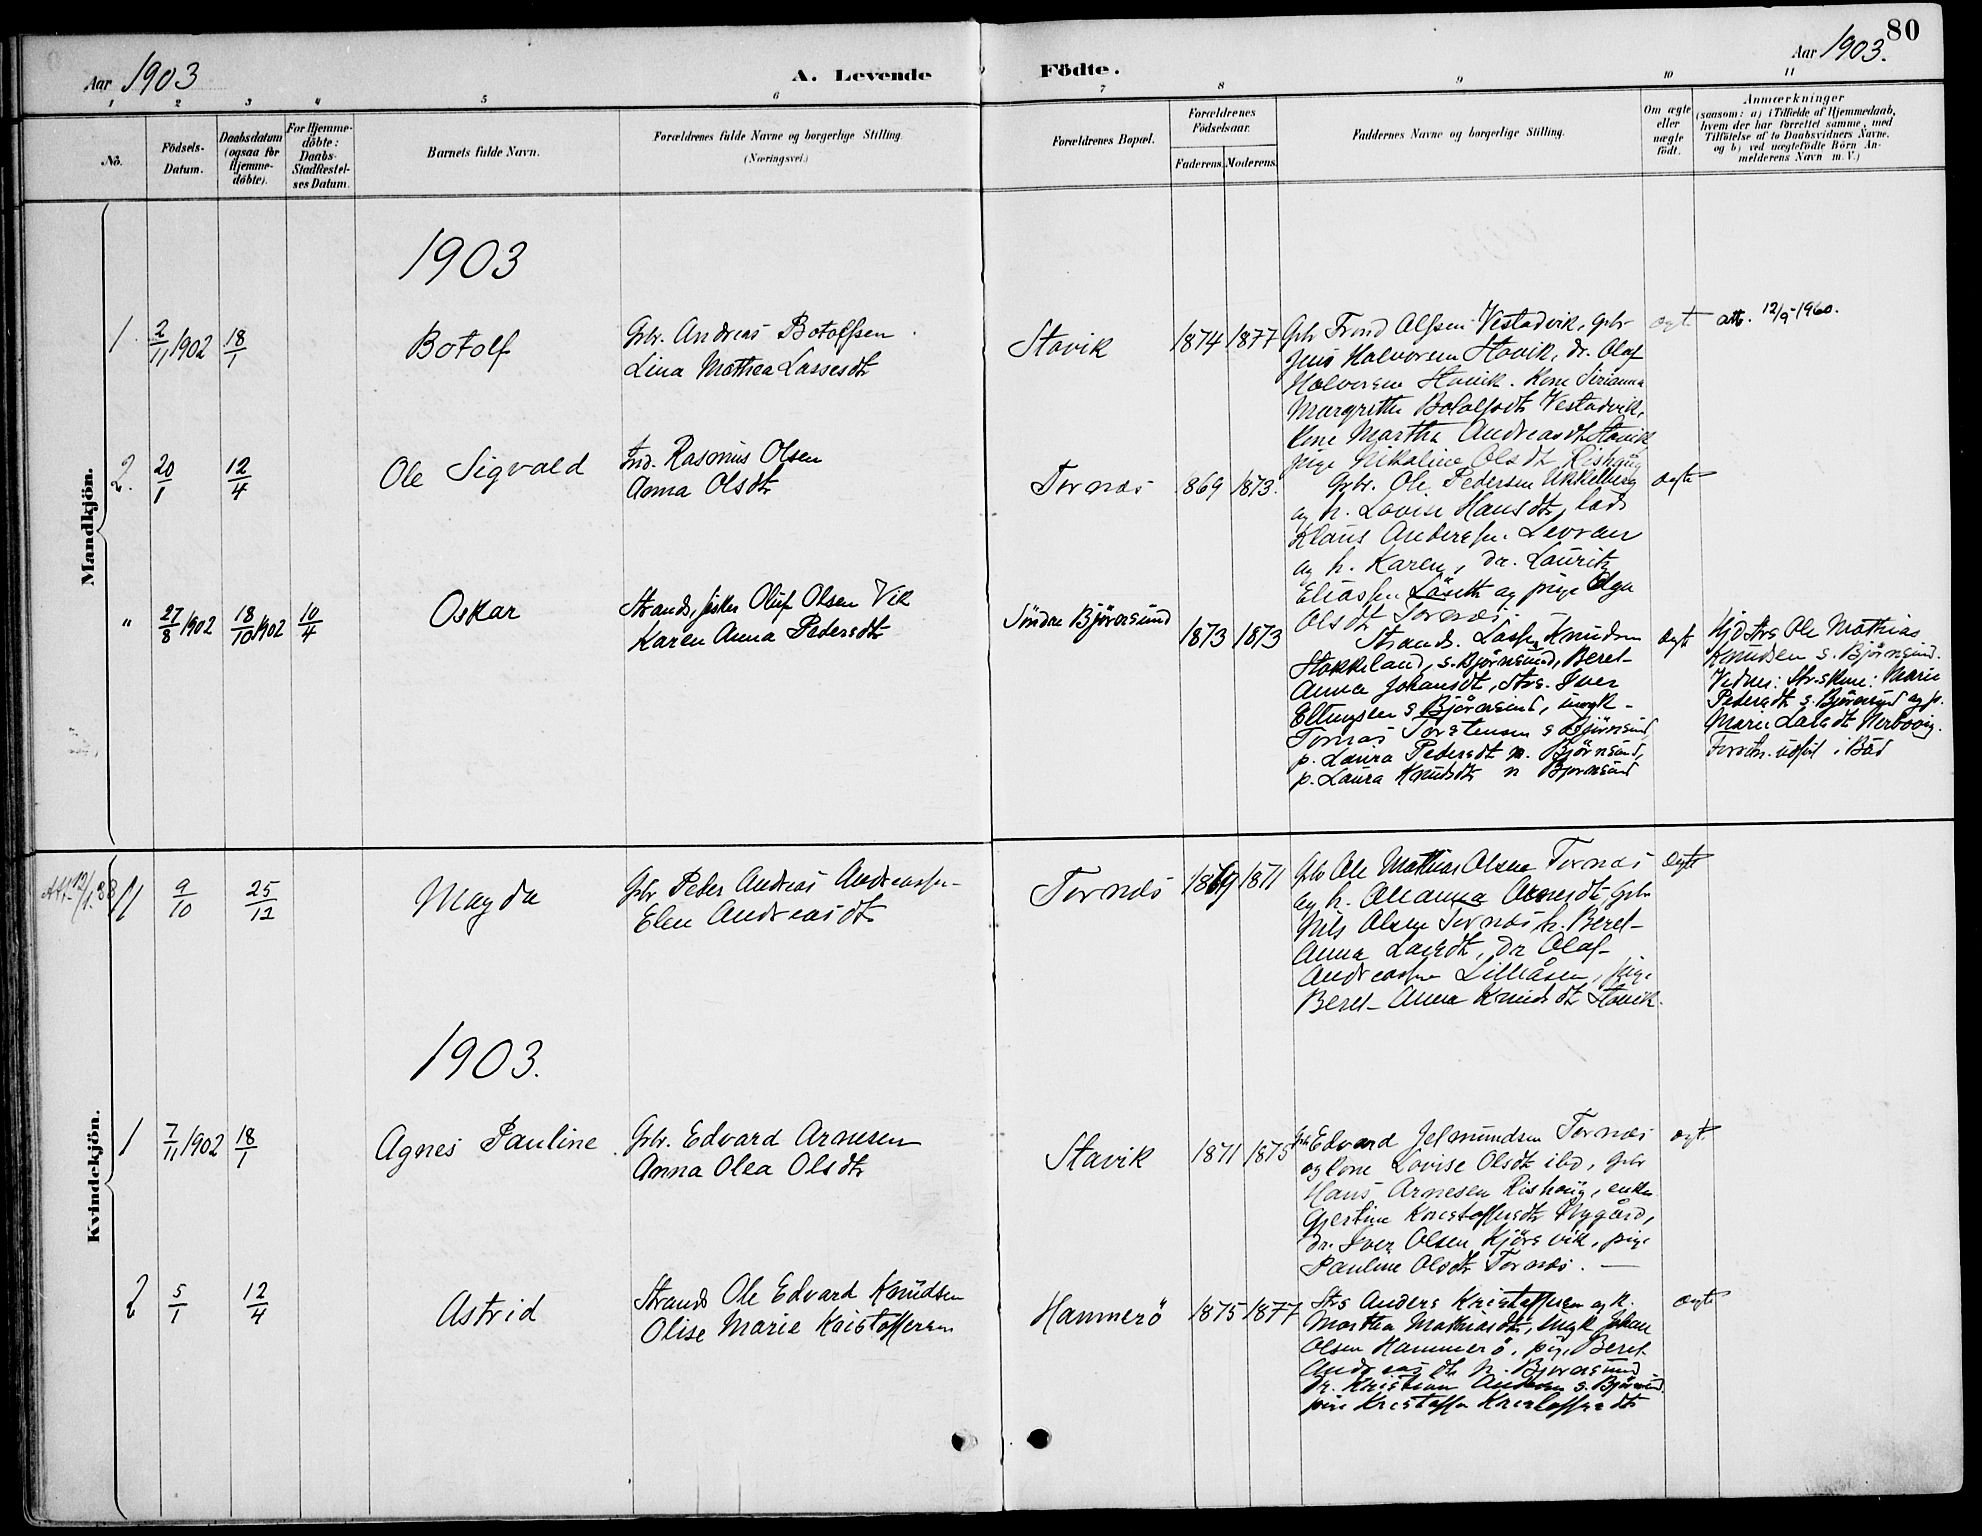 80
Aar 1903
A. Levende
Födte.
Aar 1903.
1 2 3 4 5 6 7 8 9 10 11
No.
Födsels-
Datum.
Daabsdatum
(ogsaa for
Hjemme-
döbte).
For Hjemme-
döbte:
Daabs-
Stadfæstel-
ses Datum.
Barnets fulde Navn.
Forældrenes fulde Navne og borgerlige Stilling.
(Næringsvei.)
Forældrenes Bopæl.
Forældrenes
Födselsaar.
Faderens.
Moderens.
Faddernes Navne og borgerlige Stilling.
Om ægte
eller
uægte
födt.
Anmærkninger
(saasom: a) i Tilfælde af Hjemmedaab,
hvem der har forrettet samme, med
Tilföielse af to Daabsvidners Navne.
og b) ved uægtefödte Börn An-
melderens Navn m. V.)
Mandkjön.
1903
1 2/11 1902 18/1
Botolf
Gbr. Andreas Botolfsen
Lina Mathea Lassesdtr
Stavik
1874 1877
Gbr Trond Alfsen Vestadvik, Gbr
Jens Halvorsen Stavik, dr. Olaf
Halvorsen Stavik. Kone Sirianna
Margrethe Botolfsdtr Vestadvik,
Kone Martha Andreasdtr Stavik
pige Nikoline Olsdtr Rishaug
ægt
att. 12/9-1960.
2. 20/1 12/4
Ole Sigvald
Ind. Rasmus Olsen
Anna Olsdtr
Tornæs
1869 1873.
Gbr. Ole Pedersen
og h. Lovise Hansdtr, lods
Klaus Anderssen Levran
og h. Karen, dr. Lauritz
Eliassen og pige Olga
Olsdtr Tornæs.
ægte
" 27/8 1902 18/10 1902 10/4
Oskar
Strands. fisker Oluf Olsen Vik
Karen Anna Pedersdtr
Söndre Björnsund
1873 1873
Strands. Lasse Knudsen
Stokkeland, s. Björnsund, Beret-
Anna Johansdtr, Strs. Iver
s Björnsund, ungk-
Tomas Torstensen s Björnsund,
p. Laura Pedersdtr n. Björnsund,
p. Laura Knudsdtr n Björnsund
ægt
Hjd Strs Ole Mathias
Knudsen s. Björnsund.
Vidner: Str.s kone: Marie
Pedersdtr s. Björnsund og p.
Maren Larsdtr Nerbövig.
i Bud
Kvindekjön.
Att. 12/1.38
11 9/10 25/12
Magda
Gbr Peder Andreas Andreassen
Elen Andreasdtr
Tornæs
1869 1871
Gbr Ole Mathias Olsen Tornæs
og h. Oleanna Arnesdtr, Gbr
Nils Olsen Tornæs, h. Beret-
Anna Larsdtr, Dr Olaf
Andreassen Lilleåsen, pige
Beret-Anna Knudsdtr Stavik.
ægte
1903.
1 7/11 1902 18/1
Agnes Pauline.
Gbr. Edvard Arnesen
Anna Olea Olsdtr
Stavik
1871 1875
Gbr Edvard Jelmundsen Tornæs
og kone Lovise Olsdtr ibd, Gbr
Hans Arnesen Rishaug, enke
Gjertine Kristoffersdtr Nygård,
dr. Iver Olsen Kjörsvik, pige
Pauline Olsdtr Tornæs.
ægt.
2 5/1 12/4
Astrid
Strands Ole Edvard Knudsen
Olise Marie Kristoffersen
Hammerö
1875 1877
Strs Anders Kristoffersen og k.
Martha Mathiasdtr, ungk Johan
Olsen Hammerö, pige Beret
Andreasdtr n. Björnsund
Dr. Kristian Andersen s. Björnsund
pige Kristoffa Kristoffersdtr
ægte